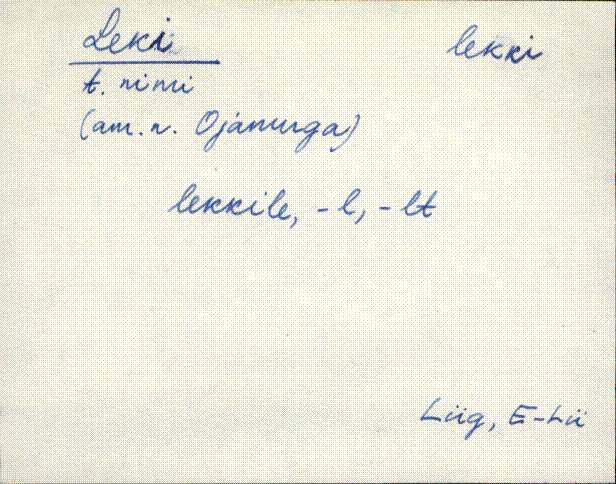 Leki lekki
t. nimi
(am. n. Ojanurga)
lekkile, -l, -lt
Lüg, E-Lü